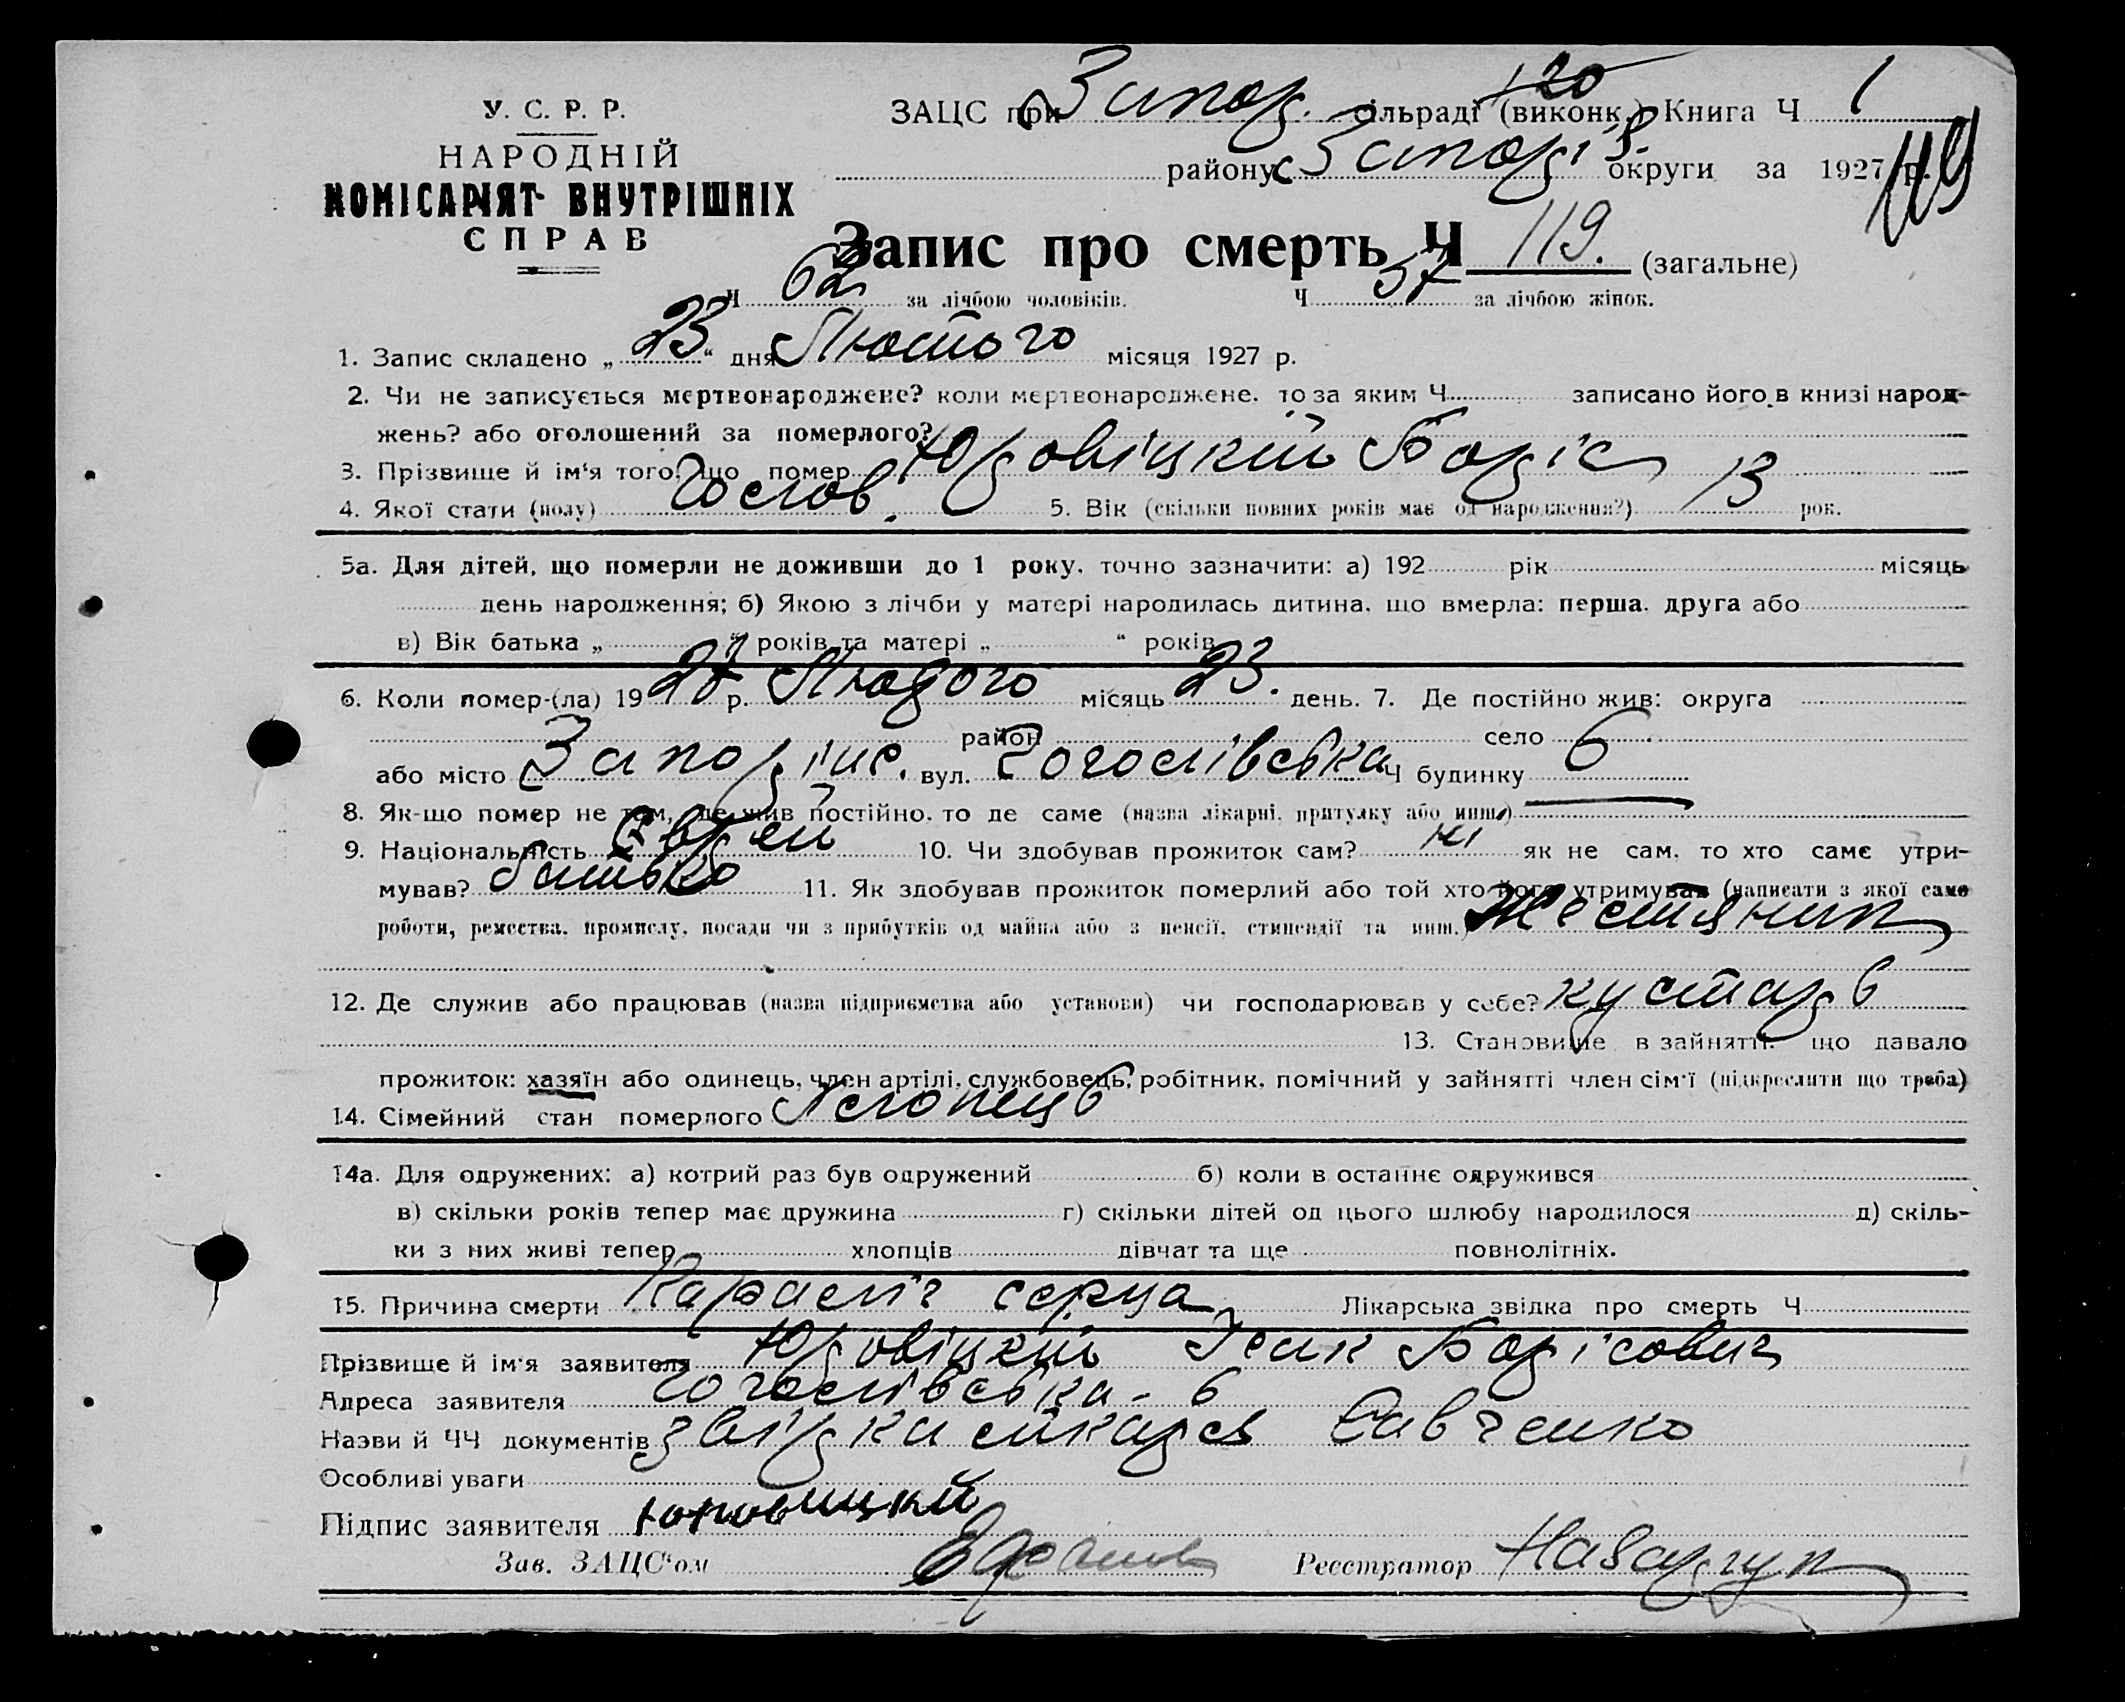 120
У. С. Р. Р.
ЗАЦС при Запор. сільраді (виконк.) Книга Ч 1
НАРОДНІЙ
КОМІСАРІЯТ ВНУТРІШНІХ
СПРАВ
району Запоріз. округи за 1927 р.
119
Запис про смерть Ч 119. (загальне)
Ч 62 за лічбою чоловіків. Ч 57 за лічбою жінок.
1. Запис складено „ 23 “ дня Лютого місяця 1927 р.
2. Чи не записується мертвонароджене? коли мертвонароджене, то за яким Ч записано його в книзі народ-
жень? або оголошений за померлого?
3. Прізвище й ім‘я того, що помер Юровіцкий Боріс
4. Якої стати (полу) Чолов. 5. Вік (скільки повних років має од народження?) 13 рок.
5а. Для дітей, що померли не доживши до 1 року, точно зазначити: а) 192 рік місяць
день народження; б) Якою з лічби у матері народилась дитина, що вмерла: перша, друга або
в) Вік батька „ “ років та матері „ “ років
6. Коли помер-(ла) 19 27 р. Лютого місяць 23. день. 7. Де постійно жив: округа
район село
або місто Запоріже, вул. Гоголівська Ч будинку 6
8. Як-що помер не там, де жив постійно, то де саме (назва лікарні, притулку або инш.)
9. Національність Єврей 10. Чи здобував прожиток сам? ні як не сам, то хто саме утри-
мував? батько 11. Як здобував прожиток померлий або той хто його утримував (написати з якої само
роботи, ремества, промислу, посади чи з прибутків од майна або з пенсії, стипендії та инш.) Жестяник
12. Де служив або працював (назва підприємства або установи) чи господарював у себе? кустарь
13. Становище в зайнятті, що давало
прожиток: хазяїн або одинець, член артілі, службовець, робітник, помічний у зайнятті член сім‘ї (підкреслити що треба)
14. Сімейний стан померлого
14а. Для одружених: а) котрий раз був одружений б) коли в останнє одружився
в) скільки років тепер має дружина г) скільки дітей од цього шлюбу народилося д) скіль-
ки з них живі тепер хлопців дівчат та ще повнолітніх.
15. Причина смерти Параліч серца Лікарська звідка про смерть Ч
Прізвище й ім‘я заявителя Юровіцкий Ісак Борісович
Адреса заявителя Гоголівська - 6
Назви й ЧЧ документів лікаря Савченко
Особливі уваги
Підпис заявителя Юровицкий
Зав. ЗАЦС‘ом Реєстратор